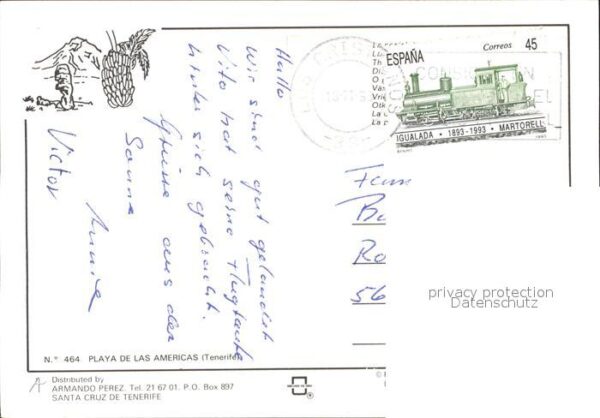 Hallo
Wir sind gut gelandet
Vito hat seine Flugtaufe
hinter sich gebracht.
Grüsse aus der
Sonne
Annie
Victor
ESPAÑA
Correos
45
IGUALADA · 1893-1993 · MARTORELL
Fam
Ro
56
privacy protection
Datenschutz
N.° 464 PLAYA DE LAS AMERICAS (Tenerife)
Distributed by
ARMANDO PEREZ. Tel. 21 67 01. P.O. Box 897
SANTA CRUZ DE TENERIFE